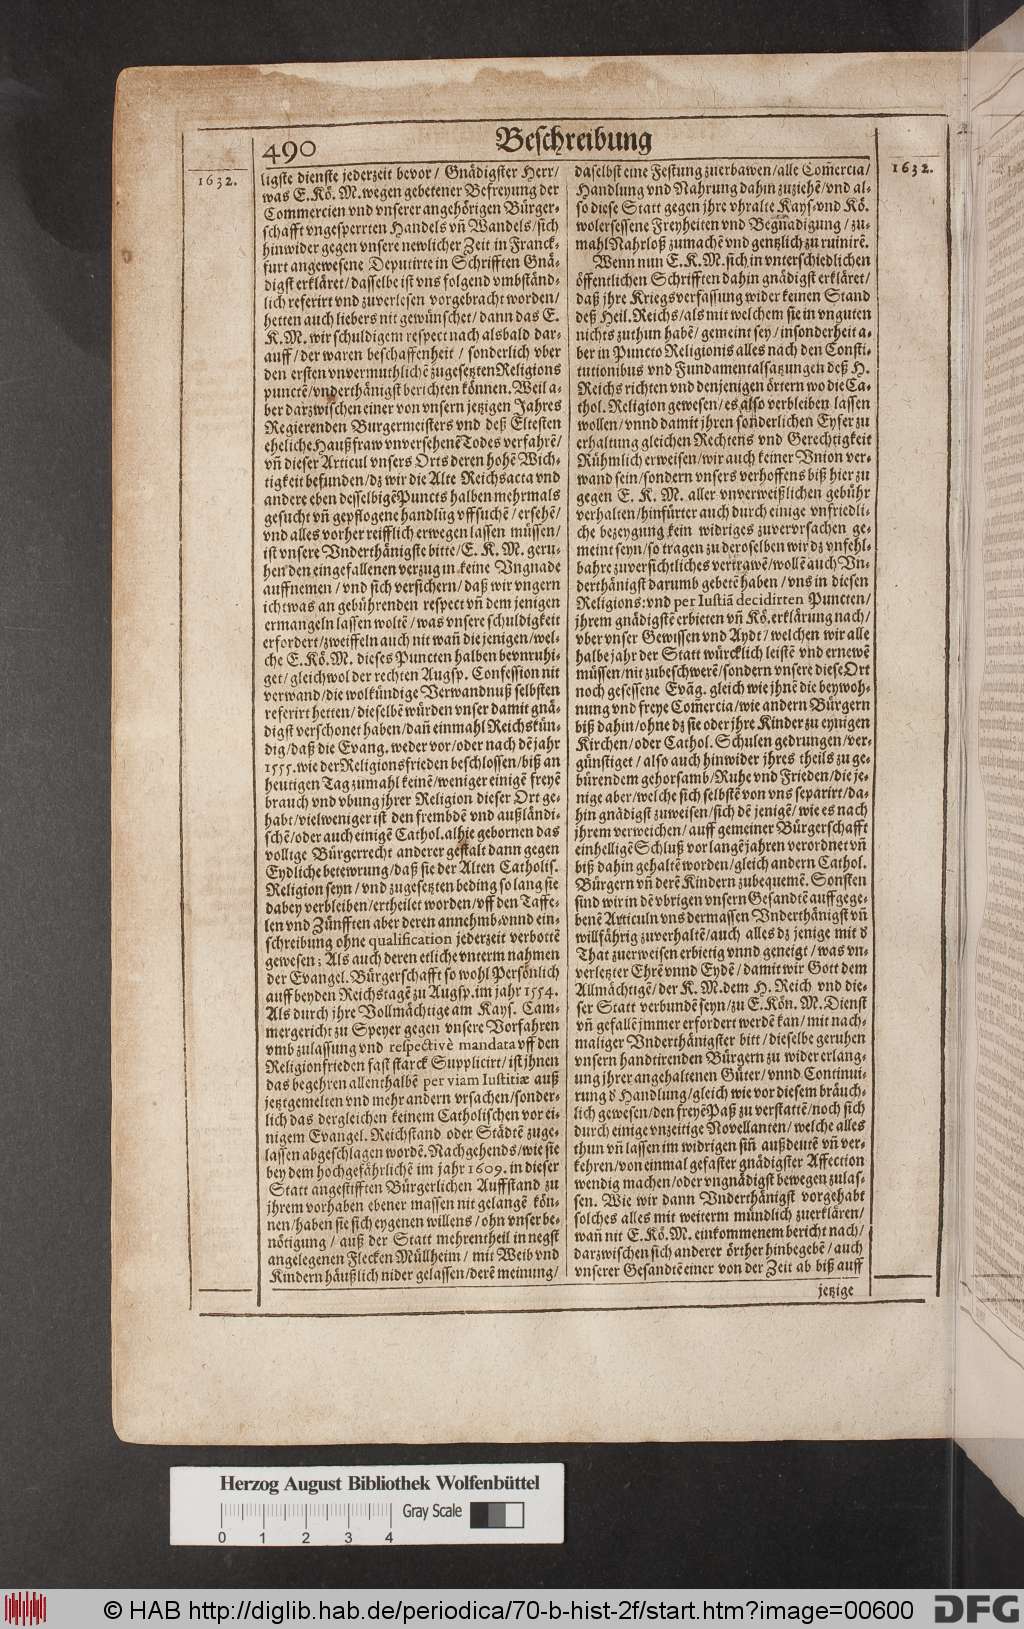 490
Beschreibung
1632.
1632.
ligste dienste jederzeit bevor / Gnädigster Herr/
was E. Kö. M. wegen gebetener Befreyung der
Commercien vnd vnserer angehörigen Bürger-
schafft vngesperrten Handels vñ Wandels / sich
hinwider gegen vnsere newlicher Zeit in Franck-
furt angewesene Deputirte in Schrifften Gnä-
digst erkläret / dasselbe ist vns folgend vmbständ-
lich referirt vnd zuverlesen vorgebracht worden/
hetten auch liebers nit gewünschet / dann das E.
K. M. wir schuldigem respect nach alsbald dar-
auff / der waren beschaffenheit / sonderlich vber
den ersten vnvermuthlichẽ zugesetzten Religions
punctẽ / vnderthänigst berichten können. Weil a-
ber darzwischen einer von vnsern jetzigen Jahres
Regierenden Burgermeisters vnd deß Eltesten
eheliche Haußfraw vnversehenẽ Todes verfahrẽ/
vñ dieser Articul vnsers Orts deren hohẽ Wich-
tigkeit befunden / dz wir die Alte Reichsacta vnd
andere eben desselbigẽ Puncts halben mehrmals
gesucht vñ gepflogene handlũg vffsuchẽ / ersehẽ/
vnd alles vorher reifflich erwegen lassen müssen/
ist vnsere Vnderthänigste bitte / E. K. M. geru-
hen den eingefallenen verzug in keine Vngnade
auffnemen / vnd sich versichern / daß wir vngern
icht was an gebührenden respect vñ dem jenigen
ermangeln lassen woltẽ / was vnsere schuldigkeit
erfordert / zweiffeln auch nit wañ die jenigen / wel-
che E. Kö. M. dieses Puncten halben bevnruhi-
get / gleichwol der rechten Augsp. Confession nit
verwand / die wolkündige Verwandnuß selbsten
referirt hetten / dieselbẽ würden vnser damit gnä-
digst verschonet haben / dañ einmahl Reichskün-
dig / daß die Evang. weder vor / oder nach dẽ jahr
1555. wie der Religionsfrieden beschlossen / biß an
heutigen Tag zumahl keinẽ / weniger einigẽ freyẽ
brauch vnd vbung jhrer Religion dieser Ort ge-
habt / vielweniger ist den frembdẽ vnd außländi-
schẽ / oder auch einigẽ Cathol. alhie gebornen das
vollige Bürgerrecht anderer gestalt dann gegen
Eydliche betewrung / daß sie der Alten Catholis.
Religion seyn / vnd zugesetzten beding so lang sie
dabey verbleiben / ertheilet worden / vff den Taffe-
len vnd Zünfften aber deren annehmb-vnnd ein-
schreibung ohne qualification jederzeit verbottẽ
gewesen; Als auch deren etliche vnterm nahmen
der Evangel. Bürgerschafft so wohl Persönlich
auff beyden Reichstagẽ zu Augsp. im jahr 1554.
Als durch jhre Vollmächtige am Kays. Cam-
mergericht zu Speyer gegen vnsere Vorfahren
vmb zulassung vnd respectivè mandata vff den
Religionfrieden fast starck Supplicirt / ist jhnen
das begehren allenthalbẽ per viam Iustitiæ auß
jetztgemelten vnd mehr andern vrsachen / sonder-
lich das dergleichen keinem Catholischen vor ei-
nigem Evangel. Reichstand oder Städtẽ zuge-
lassen abgeschlagen wordẽ. Nachgehends / wie sie
bey dem hochgefährlichẽ im jahr 1609. in dieser
Statt angestifften Bürgerlichen Auffstand zu
jhrem vorhaben ebener massen nit gelangẽ kön-
nen / haben sie sich eygenen willens / ohn vnser be-
nötigung / auß der Statt mehrentheil in negst
angelegenen Flecken Müllheim / mit Weib vnd
Kindern häußlich nider gelassen / derẽ meinung/
daselbst eine Festung zuerbawen / alle Com̃ercia/
Handlung vnd Nahrung dahin zuziehẽ / vnd al-
so diese Statt gegen jhre vhralte Kays-vnd Kö.
wolersessene Freyheiten vnd Begnadigung / zu-
mahl Nahrloß zumachẽ vnd gentzlich zu ruinirẽ.
Wenn nun E. K. M. sich in vnterschiedlichen
öffentlichen Schrifften dahin gnädigst erkläret/
daß jhre Kriegsverfassung wider keinen Stand
deß Heil. Reichs / als mit welchem sie in vnguten
nichts zuthun habẽ / gemeint sey / insonderheit a-
ber in Puncto Religionis alles nach den Consti-
tutionibus vnd Fundamentalsatzungen deß H.
Reichs richten vnd denjenigen örtern wo die Ca-
thol. Religion gewesen / es also verbleiben lassen
wollen / vnnd damit ihren sonderlichen Eyfer zu
erhaltung gleichen Rechtens vnd Gerechtigkeit
Rühmlich erweisen / wir auch keiner Vnion ver-
wand sein / sondern vnsers verhoffens biß hier zu
gegen E. K. M. aller vnverweißlichen gebühr
verhalten / hinfürter auch durch einige vnfriedli-
che bezeygung kein widriges zuvervrsachen ge-
meint seyn / so tragen zu deroselben wir dz vnfehl-
bahre zuversichtliches vertrawẽ / wollẽ auch Vn-
derthänigst darumb gebetẽ haben / vns in diesen
Religions: vnd per Iustiã decidirten Puncten/
jhrem gnädigstẽ erbieten vñ Kö. erklärung nach/
vber vnser Gewissen vnd Aydt / welchen wir alle
halbe jahr der Statt würcklich leistẽ vnd ernewẽ
müssen / nit zubeschwerẽ / sondern vnsere diese Ort
noch gesessene Evãg. gleich wie jhnẽ die beywoh-
nung vnd freye Com̃ercia / wie andern Bürgern
biß dahin / ohne dz sie oder jhre Kinder zu eynigen
Kirchen / oder Cathol. Schulen gedrungen / ver-
günstiget / also auch hinwider jhres theils zu ge-
bürendem gehorsamb / Ruhe vnd Frieden / die je-
nige aber / welche sich selbstẽ von vns separirt / da-
hin gnädigst zuweisen / sich dẽ jenigẽ / wie es nach
jhrem verweichen / auff gemeiner Bürgerschafft
einhelligẽ Schluß vor langẽ jahren verordnet vñ
biß dahin gehaltẽ worden / gleich andern Cathol.
Bürgern vñ derẽ Kindern zubequemẽ. Sonsten
sind wir in dẽ vbrigen vnsern Gesandtẽ auffgege-
benẽ Articuln vns dermassen Vnderthänigst vñ
willfährig zuverhaltẽ / auch alles dz jenige mit d
That zuerweisen erbietig vnnd geneigt / was vn-
verletzter Ehrẽ vnnd Eydẽ / damit wir Gott dem
Allmächtigẽ / der K. M. dem H. Reich vnd die-
ser Statt verbundẽ seyn / zu E. Kön. M. Dienst
vñ gefallẽ jmmer erfordert werdẽ kan / mit nach-
maliger Vnderthänigster bitt / dieselbe geruhen
vnsern handtirenden Bürgern zu wider erlang-
ung jhrer angehaltenen Güter / vnnd Continui-
rung d Handlung / gleich wie vor diesem bräuch-
lich gewesen / den freyẽ Paß zu verstattẽ / noch sich
durch einige vnzeitige Novellanten / welche alles
thun vñ lassen im widrigen siñ außdeutẽ vñ ver-
kehren / von einmal gefaster gnädigster Affection
wendig machen / oder vngnädigst bewegen zulas-
sen. Wie wir dann Vnderthänigst vorgehabt
solches alles mit weiterm mündlich zuerklären/
wañ nit E. Kö. M. einkommenem bericht nach/
darzwischen sich anderer örther hinbegebẽ / auch
vnserer Gesandtẽ einer von der Zeit ab biß auff
jetzige
Herzog August Bibliothek Wolfenbüttel
0 1 2 3 4
Gray Scale
© HAB http://diglib.hab.de/periodica/70-b-hist-2f/start.htm?image=00600
DFG